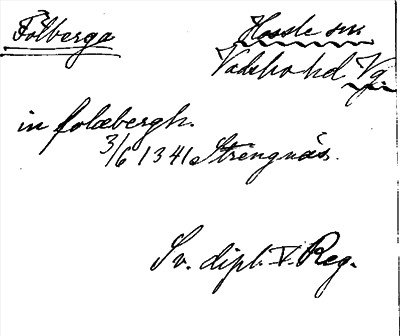 Folberga
Hassle sn
Vadsbo hd Vg.
in folæbergh.
3/6 1341 Strengnäs.
Sv. dipl. V. Reg.